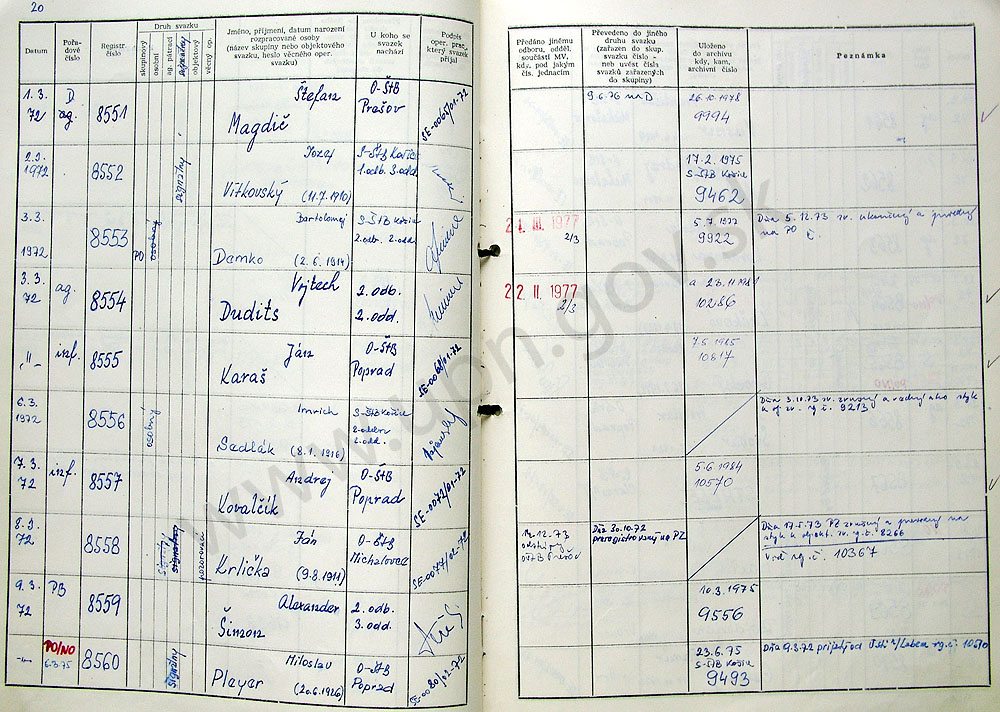 20
Datum
Pořa-
dové
číslo
Registr.
číslo
Druh svazku
skupinový
osobní
ag. pátrací
signálny
objektový
věcný op.
Jméno, příjmení, datum narození
rozpracované osoby
(název skupiny nebo objektového
svazku, heslo věcného oper.
svazku)
U koho se
svazek
nachází
Podpis
oper. prac.,
který svazek
přijal
Předáno jinému
odboru, odděl.
součásti MV,
kdy, pod jakým
čís. jednacím
Převedeno do jiného
druhu svazku
(zařazen do skup.
svazku číslo -
neb uvést čísla
svazků zařazených
do skupiny)
Uloženo
do archivu
kdy, kam,
archivní číslo
Poznámka
1. 3.
72
D
ag.
8551
Štefan
Magdič
O-ŠtB
Prešov
SE-0065/01-72
9.6.76 na D
26.10.1978
9994
2.3.
1972
8552
signálny
Jozef
Vitkovský (11.7.1910)
S-ŠtB Košice
1.odb. 3.odd.
17.2.1975
S-ŠtB Košice
9462
3.3.
1972
8553
PO
osobný
Bartolomej
Demko (2.6.1914)
S-ŠtB Košice
2.odb. 2.odd.
21. III. 1977
2/3
5.7.1977
9922
Dňa 5.12.73 zv. ukončený a prevedený
na PO
3. 3.
72
ag.
8554
Vojtech
Dudits
2. odb.
2. odd.
22. II. 1977
2/3
10286
-"-
inf.
8555
Ján
Karaš
O-ŠtB
Poprad
SE-0068/01-72
7.5.1985
10817
6.3.
1972
8556
osobný
Imrich
Sedlák (8.1.1916)
S-ŠtB Košice
2.odbor
2.odd.
Dňa 3.10.73 zv. zrušený a vedený ako styk
k of. zv. rg. č. 9213
7. 3.
72
inf.
8557
Andrej
Kovalčík
O-ŠtB
Poprad
SE-0072/01-72
5.6.1984
10570
8.3.
72
8558
signálny
pozorovací
Ján
Krlička (9.8.1911)
O-ŠtB
Michalovce
SE-0077/02-72
12.12.73
Dňa 30.10.72
preregistrovaný na PZ
Dňa 17.5.73 PZ zrušený a prevedený na
styk k objekt. zv. rg. č. 8266
viď rg. č. 10367
9. 3.
72
PB
8559
Alexander
Šimon
2. odb.
3. odd.
10.3.1975
9556
-"-
PO/NO
6.3.75
8560
signálny
Miloslav
Pleyer (20.6.1926)
O-ŠtB
Poprad
SE-0080/02-72
23.6.75
S-ŠtB Košice
9493
Dňa 9.3.72 prijatý od Ústí n/Labem rg. č. 10610
www.upn.gov.sk